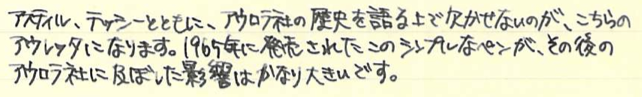 アスティル、テッシーとともに、アウロラ社の歴史を語る上で欠かせないのが、こちらの
アウレッタになります。1965年に発売されたこのシンプルなペンが、その後の
アウロラ社に及ぼした影響はかなり大きいです。